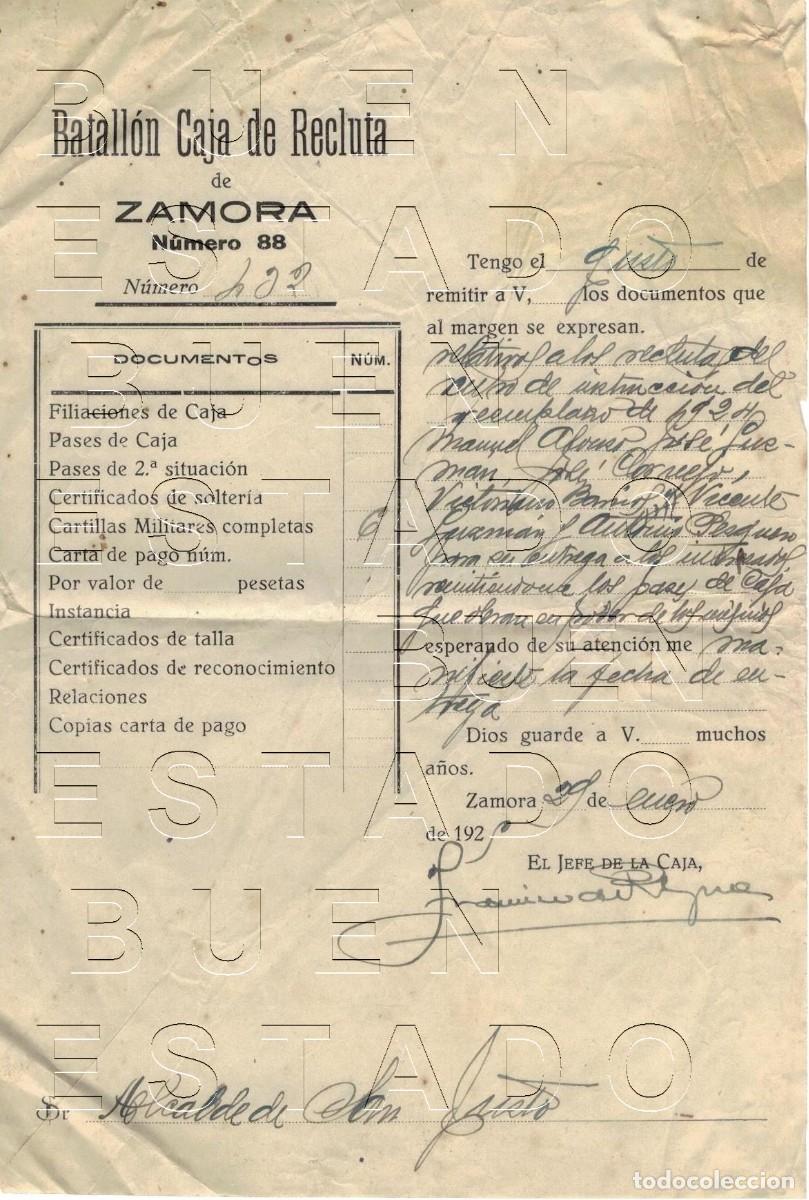 Batallón Caja de Recluta
de
ZAMORA
Número 88
Número 432
DOCUMENTOS NÚM.
Filiaciones de Caja
Pases de Caja
Pases de 2.ª situación
Certificados de soltería
Cartillas Militares completas 6
Carta de pago núm.
Por valor de pesetas
Instancia
Certificados de talla
Certificados de reconocimiento
Relaciones
Copias carta de pago
Tengo el gusto de
remitir a V, los documentos que
al margen se expresan.
relativos a los recluta del
de instrucción del
reemplazo de 1924
Manuel Afonso José Guz-
man, José Cornejo,
Victoriano Barrios y Vicente
Guzmán y Antonio Pesquero
para su entrega a los interesados
remitiendome los pase de Caja
que obran en poder de los mismos
esperando de su atención me ma-
nifieste la fecha de en-
trega
Dios guarde a V. muchos
años.
Zamora 29 de enero
de 192
EL JEFE DE LA CAJA,
Sr Alcalde de San Justo
BUEN
ESTADO
BUEN
ESTADO
BUEN
ESTADO
BUEN
ESTADO
todocoleccion